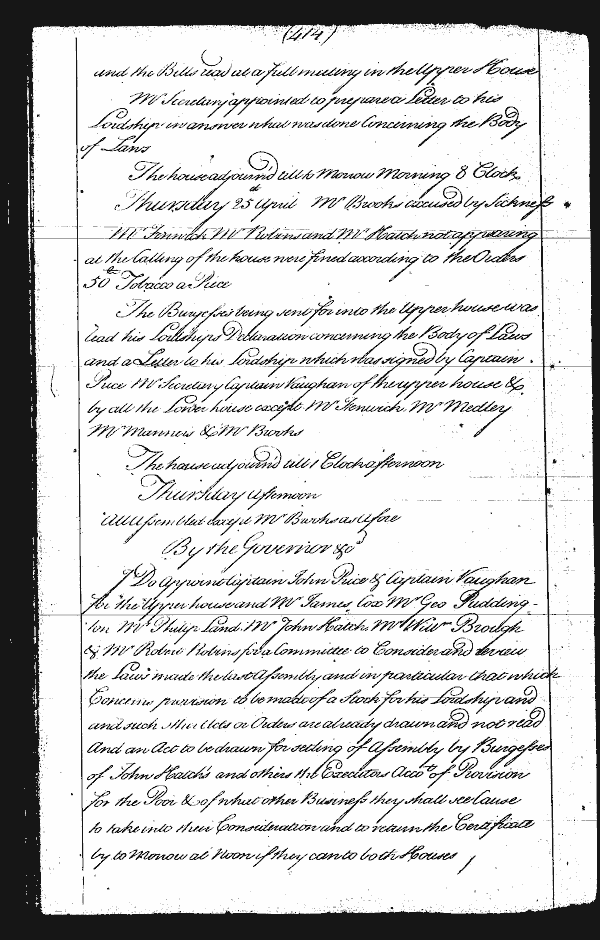 (414)
and the Bills read at a full meeting in the Upper House
Mr Secretary appointed to prepare a Letter to his
Lordship in answer what was done Concerning the Body
of Laws
The house adjourn'd till to Morrow Morning 8 Clock
Thursday 25th April Mr Brooks excused by Sickness
Mr Fenwick Mr Robins and Mr Hatch not appearing
at the Calling of the house were fined according to the Orders
50th Tobacco a Piece
The Burgesses being sent for into the Upper house was
read his Lordships Declaration concerning the Body of Laws
and a Letter to his Lordship which was signed by Captain
Price Mr Secretary Captain Vaughan of the upper house &
by all the Lower house except Mr Fenwick Mr Medley
Mr Manners & Mr Brooks
The house adjourn'd till 1 Clock afternoon
Thursday afternoon
All Assembled except Mr Brooks as afore
By the Governor &c
I Do Appoint Captain John Price & Captain Vaughan
for the Upper house and Mr James Cox Mr Geo Pudding-
ton Mr Philip Land Mr John Hatch Mr Willm Brough
& Mr Robert Robins for a Committee to Consider and review
the Laws made the last Assembly and in particular that which
Concerns provision to be made of a Stock for his Lordship and
and such other Acts or Orders are already drawn and not read
And an Act to be drawn for setling of Assembly by Burgesses
of John Hatch's and others the Executors Accots of Provision
for the Poor & of what other Business they shall see Cause
to take into their Consideration and to return the Certificate
by to Morrow at Noon if they can to both Houses